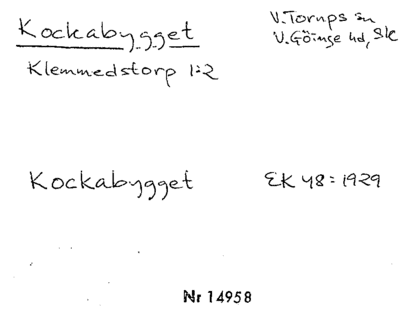 Kockabygget
V. Torups sn
V. Göinge hd, Sk
Klemmedstorp 1:2
Kockabygget
EK 48: 1929
Nr 14958